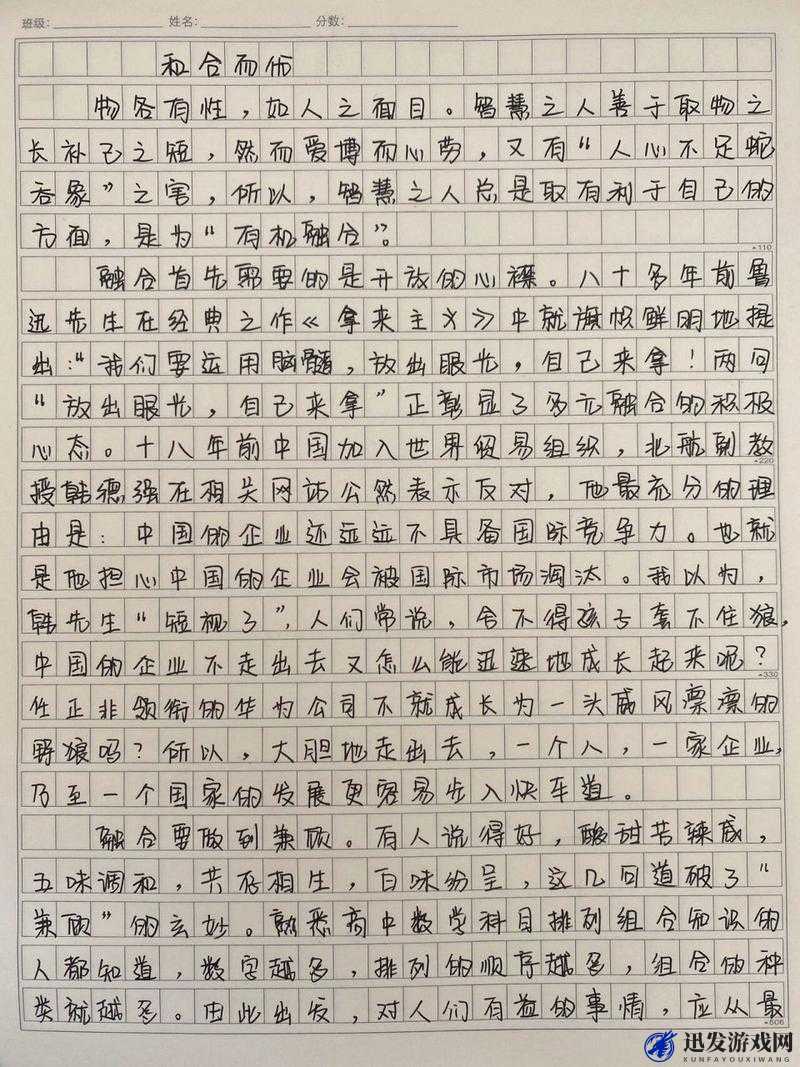 班级: 姓名: 分数:
和合而优
物各有性，如人之面目。智慧之人善于取物之
长补己之短，然而爱博而心劳，又有“人心不足蛇
吞象”之害，所以，智慧之人总是取有利于自己的
方面，是为“有机融合”。
·110
融合首先需要的是开放的心襟。八十多年前鲁
迅先生在经典之作《拿来主义》中就旗帜鲜明地提
出：“我们要运用脑髓，放出眼光，自己来拿！两问
“放出眼光，自己来拿”正彰显了多元融合的积极
心态。十八年前中国加入世界贸易组织，北航副教
·220
授韩德强在相关网站公然表示反对，他最充分的理
由是：中国的企业还远远不具备国际竞争力。也就
是他担心中国的企业会被国际市场淘汰。我以为，
韩先生“短视了”，人们常说，舍不得孩子套不住狼，
中国的企业不走出去又怎么能迅速地成长起来呢？
·330
任正非领衔的华为公司不就成长为一头威风凛凛的
野狼吗？所以，大胆地走出去，一个人，一家企业，
乃至一个国家的发展更容易步入快车道。
融合要做到兼顾。有人说得好，酸甜苦辣咸，
五味调和，共存相生，百味纷呈，这几句道破了“
兼顾”的玄妙。熟悉高中数学科目排列组合知识的
人都知道，数字越多，排列的顺序越多，组合的种
类就越多。由此出发，对人们有益的事情，应从最
迅发游戏网
XUNFAYOUXIWANG